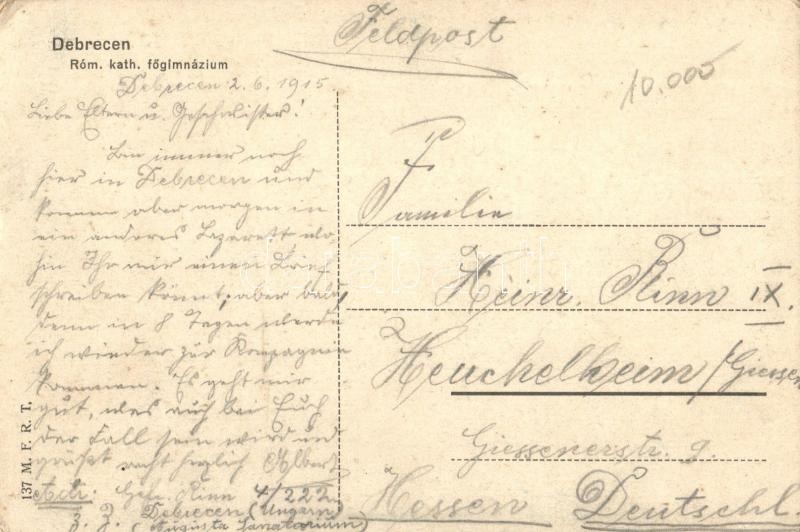 Debrecen
Róm. kath. főgimnázium
Feldpost
10.000
Debrecen 2.6.1915.
Liebe Eltern u. Geschwister!
Bin immer noch
hier in Debrecen und
komme aber morgen in
ein anderes Lazarett wo-
hin Ihr mir einen Brief
schreiben könnt, aber bald,
denn in 8 Tagen werde
ich wieder zur Kompagnie
kommen. Es geht mir
gut, was auch bei Euch
der Fall sein wird und
grüßt recht herzlich Albert
Adr: Gefr. Rinn 4/222
z. Z. Debrecen (Ungarn)
(Augusta Sanatorium)
Familie
Heinr. Rinn IX.
Heuchelheim/Giessen
Giessenerstr. 9.
Hessen Deutschl.
137 M. F. R. T.